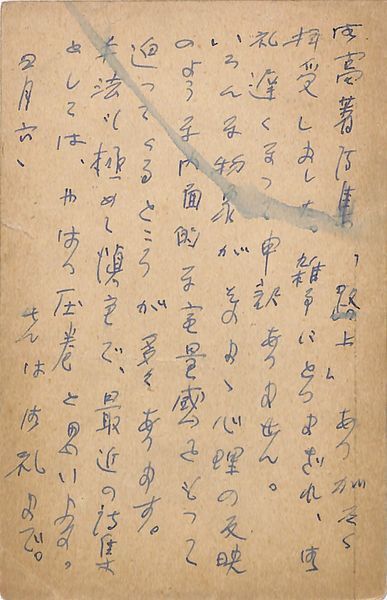 御高著詩集、「路上」ありがたく
拝受しました。雑事にとりまぎれ、御
礼遅くなつて申訳ありません。
いろんな物象がそのまゝ心理の反映
のような内面的な重量感をもつて
迫つてくるところが多々あります。
手法も極めて慎重で、最近の詩集
としては、やはり圧巻と思います。
先は御礼まで。
四月六、